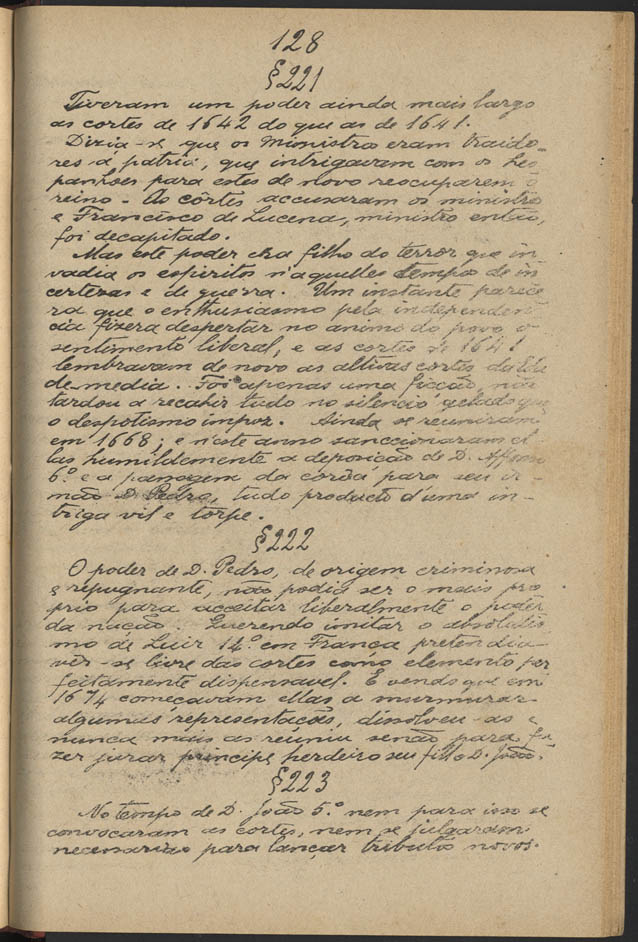 128
§221
Tiveram um poder ainda mais largo
as cortes de 1642 do que as de 1641.
Dizia-se que os Ministros eram traido-
res á patria, que intrigavam com os hes
panhoes para estes de novo reocuparem o
reino - As côrtes accusaram os ministros
e Francisco de Lucena, ministro então,
foi decapitado.
Mas este poder era filho do terror que in
vadia os espiritos n'aquelles tempos de in
certezas e de guerra. Um instante parece
ra que o enthusiasmo pela independen
cia fizera despertar no animo do povo o
sentimento liberal, e as cortes de 1641
lembravam de novo as altivas cortes da Ida
de-media. Foi apenas uma ficção, não
tardou a recahir tudo no silencio gelado que
o despotismo impoz. Ainda se reuniram
em 1668; e n'este anno sanccionaram el
las humildemente a deposição de D. Affonso
6.º e a passagem da corôa para seu ir-
mão D. Pedro, tudo producto d'uma in-
triga vil e torpe.
§222
O poder de D. Pedro, de origem criminosa
e repugnante, não podia ser o mais pro
prio para acceitar liberalmente o poder
da nação. Querendo imitar o absolutis
mo de Luiz 14.º em França pretendia
vêr-se livre das cortes como elemento per
feitamente dispensavel. E vendo que em
1674 começavam ellas a murmurar
algumas representações, dissolveu-as e
nunca mais as reuniu senão para fa
zer jurar principe herdeiro seu filho D. João.
§223
No tempo de D. João 5.º nem para isso se
convocaram as côrtes, nem se julgaram
necessarias para lançar tributos novos.